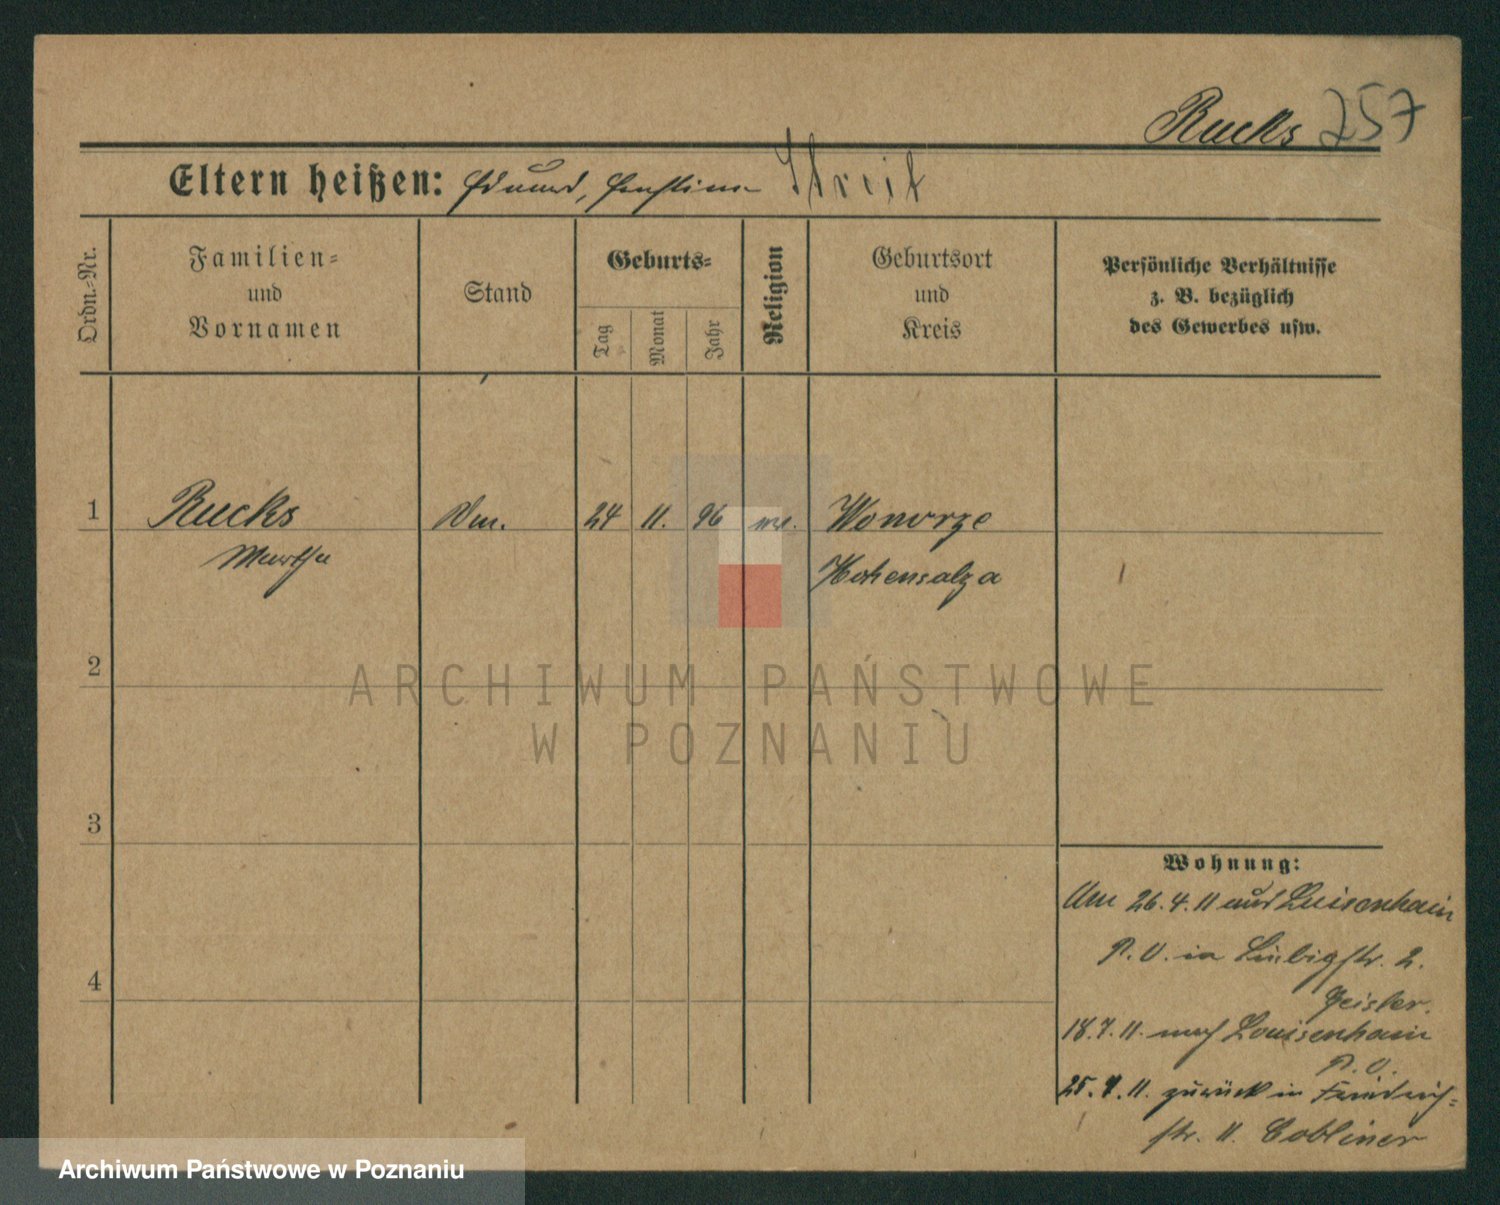 Rucks 257
Eltern heißen: Eduard, Ernstine Streit
Ordn.-Nr.
Familien-
und
Vornamen
Stand
Geburts-
Tag
Monat
Jahr
Religion
Geburtsort
und
Kreis
Persönliche Verhältnisse
z. B. bezüglich
des Gewerbes usw.
1
Rucks
24
11.
96
Wonorze
Martha
Hohensalza
2
3
4
Wohnung:
Am 26.4.11 aus Luisenhain
P. O. in Liebigstr. 2.
Geisler.
18.7.11. nach Louisenhain
P. O.
25.7.11. zurück in Friedrich-
str. 11. Cobliner
ARCHIWUM PAŃSTWOWE
W POZNANIU
Archiwum Państwowe w Poznaniu